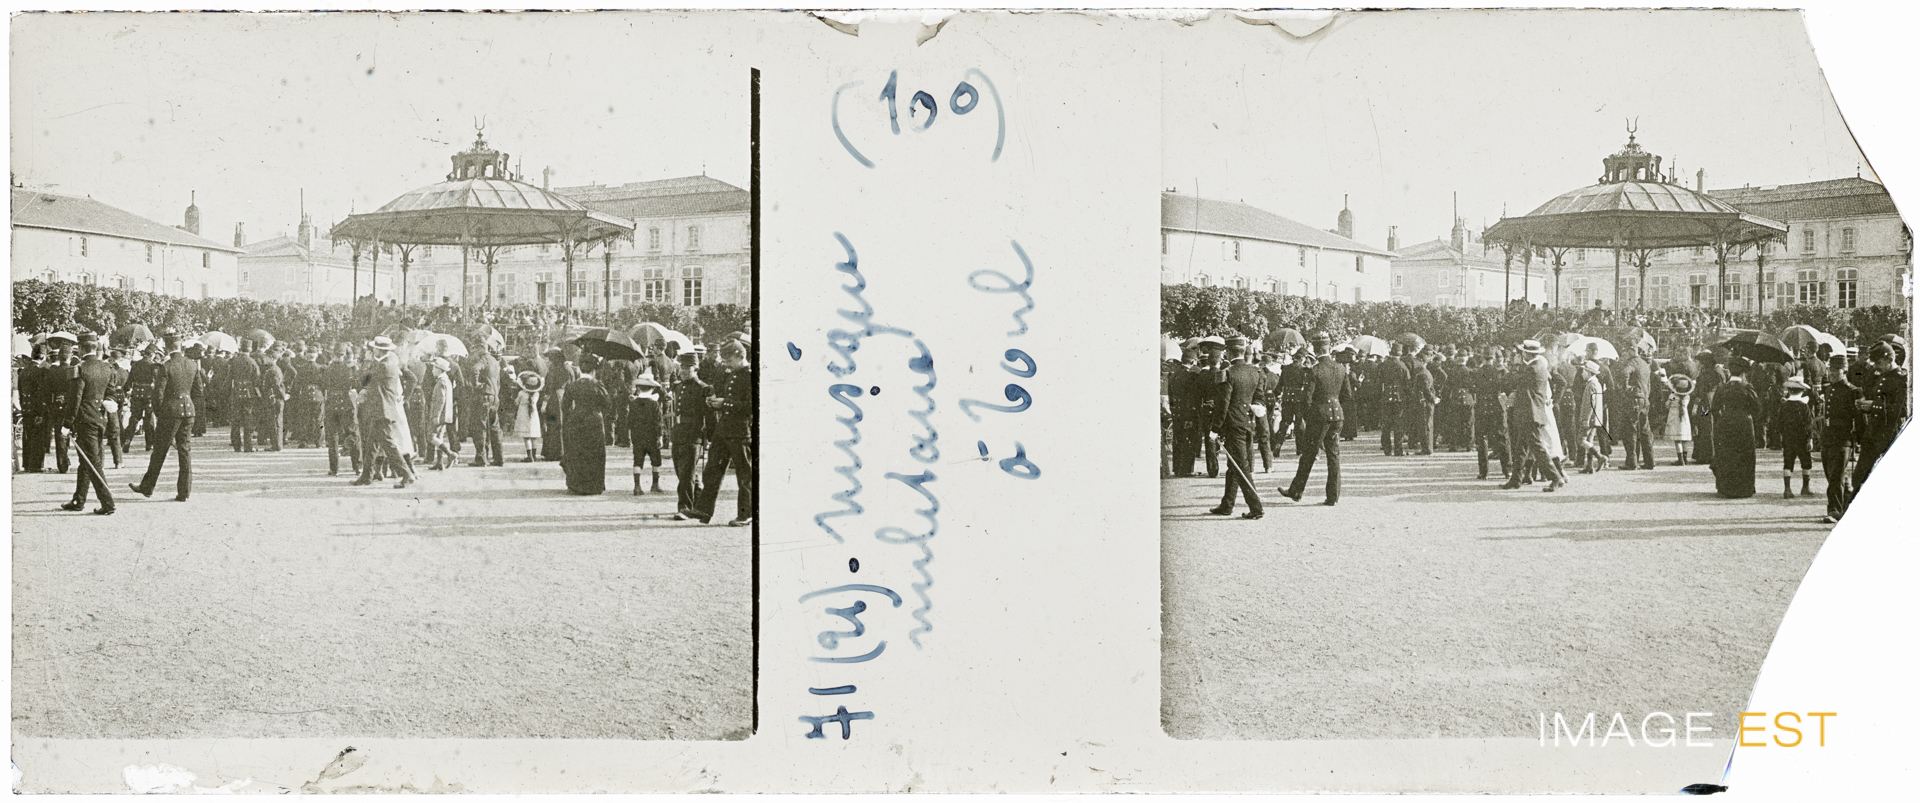 71 (21). musique
militaire
à Toul
(100)
IMAGE EST